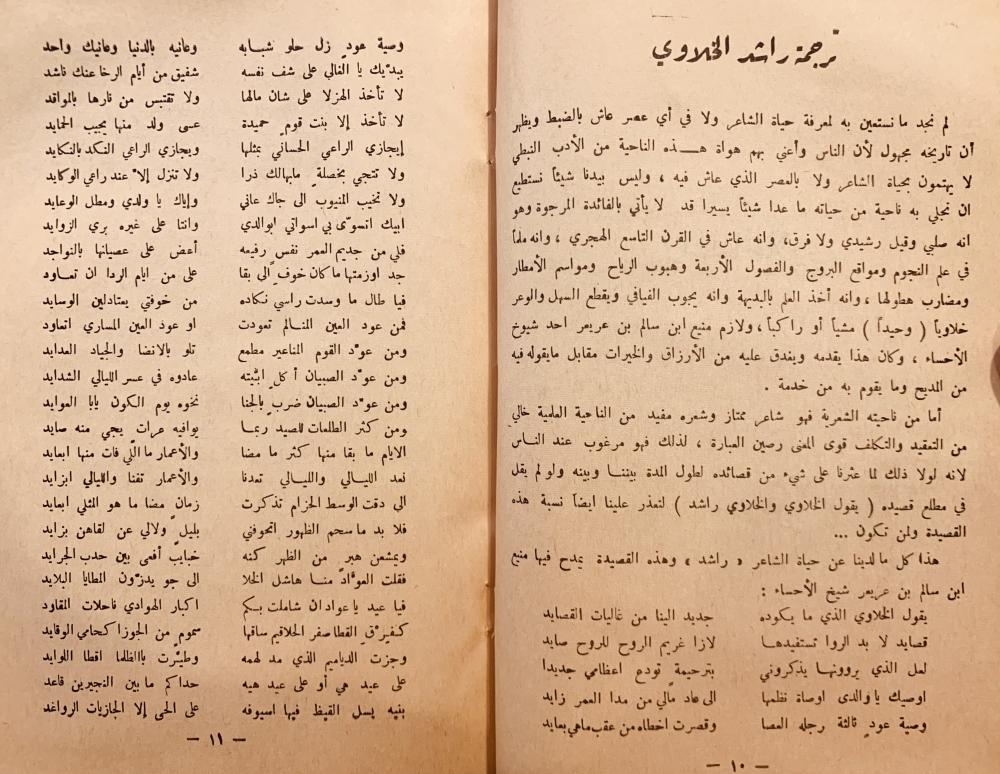 ترجمة راشد الخلاوي
لم نجد ما نستعين به لمعرفة حياة الشاعر ولا في أي عصر عاش بالضبط ويظهر
أن تاريخه مجهول لأن الناس وأعني بهم هواة هــذه الناحية من الأدب النبطي
لا يهتمون بحياة الشاعر ولا بالعصر الذي عاش فيه ، وليس بيدنا شيئاً نستطيع
ان نجلي به ناحية من حياته ما عدا شيئاً يسيرا قد لا يأتي بالفائدة المرجوة وهو
انه صلبي وقيل رشيدي ولا فرق، وانه عاش في القرن التاسع الهجري ، وانه ملماً
في علم النجوم ومواقع البروج والفصول الأربعة وهبوب الرياح ومواسم الأمطار
ومضارب هطولها ، وانه أخذ العلم بالبديهة وانه يجوب الفيافي ويقطع السهل والوعر
خلاوياً ( وحيداً ) مشياً أو راكباً ، ولازم منيع ابن سالم بن عريعر احد شيوخ
الأحساء ، وكان هذا يقدمه ويغدق عليه من الأرزاق والخيرات مقابل مايقوله فيه
من المديح وما يقوم به من خدمة .
أما من ناحيته الشعرية فهو شاعر ممتاز وشعره مفيد من الناحية العلمية خالي
من التعقيد والتكلف قوى المعنى رصين العبارة ، لذلك فهو مرغوب عند الناس
لانه لولا ذلك لما عثرنا على شيء من قصائده لطول المدة بيننا وبينه ولو لم يقل
في مطلع قصيده ( يقول الخلاوي والخلاوي راشد ) لتعذر علينا ايضاً نسبة هذه
القصيدة ولمن تكون ...
هذا كل مالدينا عن حياة الشاعر « راشد » وهذه القصيدة يمدح فيها منيع
ابن سالم بن عريعر شيخ الأحساء :
يقول الخلاوي الذي ما يكوده جديد البنا من غاليات القصايد
قصايد لا بد الروا تستفيدها لازا غريم الروح للروح صايد
لعل الذي يروونها يذكروني بترحيمة تودع اعظامي جديدا
اوصيك يا والدى اوصاة نظمها الى عاد مالي من مدا العمر زايد
وصية عود ثالثة رجله العصا وقصرت اخطاه من عقب ماهي بعايد
— ١٠ —
وصية عود زل حلو شبابه وعانيه بالدنيا وعانيك واحد
يبديك يا الغالي على شف نفسه شفيق من أيام الرخا عنك ناشد
لا تأخذ الهزلا على شان مالها ولا تقتبس من نارها بالمواقد
لا تأخذ إلا بنت قوم حميدة عسى ولد منها يجيب الحمايد
إيجازي الراعي الحساني بمثلها ويجازي الراعي النكد بالنكايد
ولا تنتجي بخصلة مابهالك ذرا ولا تنزل إلا عند راعي الوكايد
ولا تخيب المنيوب الى جاك عاني وإياك يا ولدي ومطل الوعايد
ابيك اتسوى بي اسواتي ابوالدي وانتا على غيره بري الزوايد
فلي من جديم العمر نفس رفيعه أعض على عصيانها بالنواجد
جد اوزمتها ما كان خوف الى بقا على من ايام الردا ان تعاود
فيا طال ما وسدت راسي نكاده من خوفتي يعتادلين الوسايد
فمن عود العين المنـالم تعودت او عود العين المساري اتعاود
ومن عود القوم المناعير مطمع تلو بالانضا والجياد العدايد
ومن عود الصبيان أكل ابنيته عادوه في عسر الليالي الشدايد
ومن عود الصبيان ضرب بالجنا نخوه يوم الكون يابا العوايد
ومن كثر الطلعات للصيد ربما يوافيه مرات يجي منه صايد
الايام ما بقا منها كثر ما مضا والأعمار ما اللي فات منها ابعايد
نعد الليـالي والليـالي تعدنا والأعمار تفنا والليالي ابزايد
الى دقت الوسط الحزام تذكرت زمان مضا ما هو المثلي ابعايد
فلا بد ما سحم الظهور اتحوفني بليل ولالي عن لقاهن بزايد
ويمشعن هبر من الظهر كنه خبايب أفعى بين حدب الجرايد
فقلت العواد منـا هاشل الخلا الى جو يدزون المطايا البلايد
فيا عيد يا عواد ان شاملت بكم اكبار الهوادي ناحلات المقاود
كفريق القطا صفر الحلاقيم ساقها سموم من الجوزا كحامي الوقايد
وجزت الدياميم الذي مد لهمه وطيرت بااظلما اقطا اللوايد
على عيد هي أو على عيد هيه حداكم ما بين النجيرين قاعد
بنيه يسل القيظ فيها اسيوفه على الحى إلا الجازيات الرواغد
— ١١ —